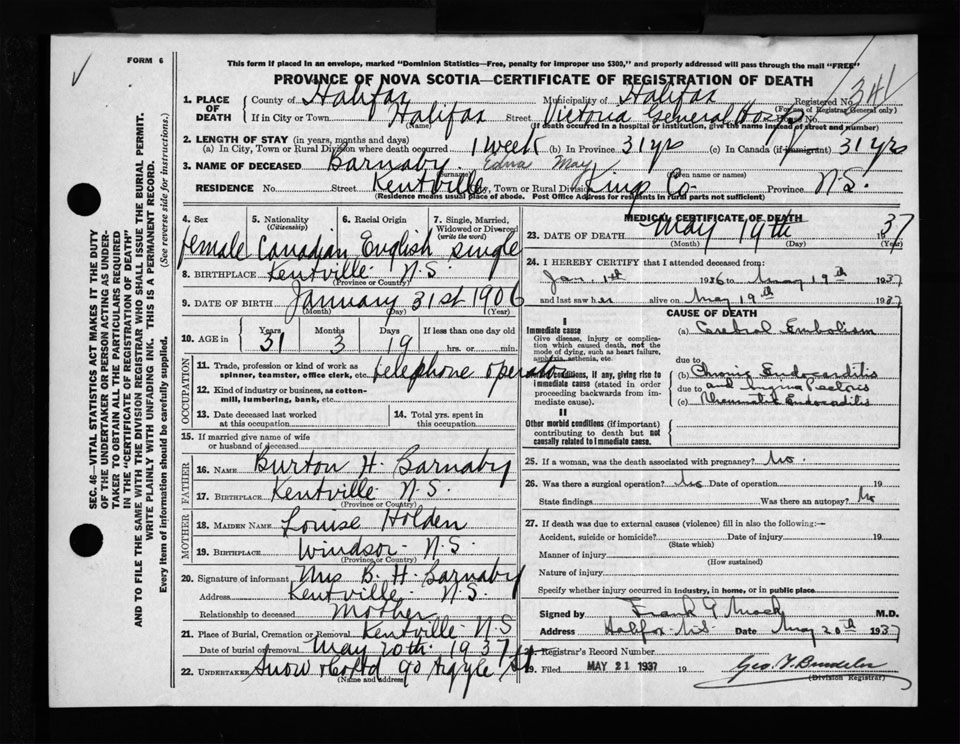 FORM 6
This form if placed in an envelope, marked "Dominion Statistics—Free, penalty for improper use $300," and properly addressed will pass through the mail "FREE"
PROVINCE OF NOVA SCOTIA—CERTIFICATE OF REGISTRATION OF DEATH
1. PLACE OF DEATH County of Halifax Municipality of Halifax Registered No.
(For use of Registrar General only)
If in City or Town Halifax (Name) Street Victoria General Hosp House No.
(If death occurred in a hospital or institution, give the name instead of street and number)
2. LENGTH OF STAY (in years, months and days)
(a) In City, Town or Rural Division where death occurred 1 week (b) In Province 31 yrs (c) In Canada (if immigrant) 31 yrs
3. NAME OF DECEASED Barnaby Edna May
(Surname) (Given name or names)
RESIDENCE No. Street Kentville City, Town or Rural Division Kings Co. Province N.S.
(Residence means usual place of abode. Post Office Address for residents in rural parts not sufficient)
4. Sex female
5. Nationality (Citizenship) Canadian
6. Racial Origin English
7. Single, Married, Widowed or Divorced (write the word) single
8. BIRTHPLACE Kentville N.S.
(Province or Country)
9. DATE OF BIRTH January 31st 1906
(Month) (Day) (Year)
10. AGE in Years 31 Months 3 Days 19 If less than one day old hrs. or min.
OCCUPATION
11. Trade, profession or kind of work as spinner, teamster, office clerk, etc. telephone operator
12. Kind of industry or business, as cotton-mill, lumbering, bank, etc.
13. Date deceased last worked at this occupation
14. Total yrs. spent in this occupation
15. If married give name of wife or husband of deceased
FATHER
16. NAME Burton H. Barnaby
17. BIRTHPLACE Kentville N.S.
(Province or Country)
MOTHER
18. MAIDEN NAME Louise Holden
19. BIRTHPLACE Windsor N.S.
(Province or Country)
20. Signature of informant Mrs B. H. Barnaby
Address Kentville N.S.
Relationship to deceased Mother
21. Place of Burial, Cremation or Removal Kentville N.S
Date of burial or removal May 20th 1937
22. UNDERTAKER Snow & Co Ltd 90 Argyle St
(Name and address)
MEDICAL CERTIFICATE OF DEATH
23. DATE OF DEATH May 19th 1937
(Month) (Day) (Year)
24. I HEREBY CERTIFY that I attended deceased from:
Jan. 1st 1936 to May 19th 1937
and last saw her alive on May 19th 1937
CAUSE OF DEATH
I
Immediate cause
Give disease, injury or complication which caused death, not the mode of dying, such as heart failure, asphyxia, asthenia, etc.
(a) Cerebral Embolism
due to
Morbid conditions, if any, giving rise to immediate cause (stated in order proceeding backwards from immediate cause).
(b) Chronic Endocarditis
due to and Angina Pectoris
(c) Rheumatic Endocarditis
II
Other morbid conditions (if important) contributing to death but not causally related to immediate cause.
25. If a woman, was the death associated with pregnancy? No.
26. Was there a surgical operation? No Date of operation 19
State findings Was there an autopsy? No
27. If death was due to external causes (violence) fill in also the following:—
Accident, suicide or homicide? Date of injury 19
(State which)
Manner of injury
(How sustained)
Nature of injury
Specify whether injury occurred in industry, in home, or in public place
Signed by Frank G Mack M.D.
Address Halifax N.S. Date May 20th 1937
Registrar's Record Number
Filed MAY 21 1937 19
(Division Registrar)
SEC. 46—VITAL STATISTICS ACT MAKES IT THE DUTY
OF THE UNDERTAKER OR PERSON ACTING AS UNDER-
TAKER TO OBTAIN ALL THE PARTICULARS REQUIRED
IN THE "CERTIFICATE OF REGISTRATION OF DEATH"
AND TO FILE THE SAME WITH THE DIVISION REGISTRAR WHO SHALL ISSUE THE BURIAL PERMIT.
WRITE PLAINLY WITH UNFADING INK. THIS IS A PERMANENT RECORD.
Every item of information should be carefully supplied. (See reverse side for instructions.)